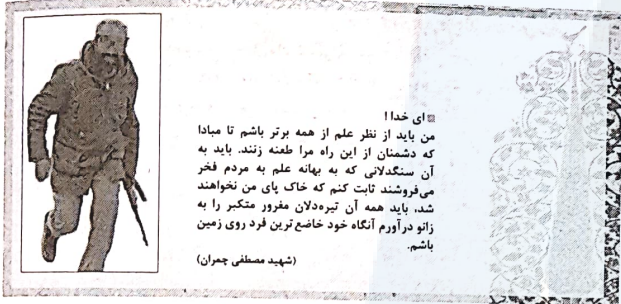 ای خدا !
من باید از نظر علم از همه برتر باشم تا مبادا
که دشمنان از این راه مرا طعنه زنند. باید به
آن سنگدلانی که به بهانه علم به مردم فخر
می‌فروشند ثابت کنم که خاک پای من نخواهند
شد. باید همه آن تیره‌دلان مغرور متکبر را به
زانو درآورم آنگاه خود خاضع‌ترین فرد روی زمین
باشم.
(شهید مصطفی چمران)